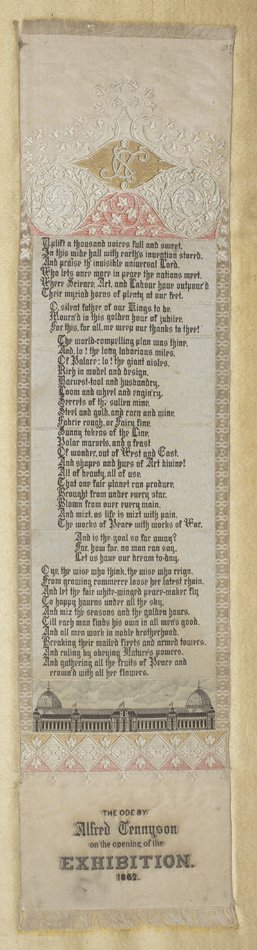 Uplift a thousand voices full and sweet,
In this wide hall with earth's invention stored,
And praise th' invisible universal Lord,
Who lets once more in peace the nations meet,
Where Science, Art, and Labour have outpour'd
Their myriad horns of plenty at our feet.
O, silent father of our Kings to be,
Mourn'd in this golden hour of jubilee,
For this, for all, we weep our thanks to thee!
The world-compelling plan was thine,
And, lo! the long laborious miles
Of Palace; lo! the giant aisles,
Rich in model and design,
Harvest-tool and husbandry,
Loom and wheel and engin'ry,
Secrets of the sullen mine,
Steel and gold, and corn and wine,
Fabric rough, or Fairy fine,
Sunny tokens of the Line,
Polar marvels, and a feast
Of wonder, out of West and East,
And shapes and hues of Art divine!
All of beauty, all of use,
That one fair planet can produce,
Brought from under every star,
Blown from over every main,
And mixt, as life is mixt with pain,
The works of Peace with works of War.
And is the goal so far away?
Far, how far, no man can say,
Let us have our dream to-day.
O ye, the wise who think, the wise who reign,
From growing commerce loose her latest chain,
And let the fair white-winged peace-maker fly
To happy havens under all the sky,
And mix the seasons and the golden hours,
Till each man finds his own in all men's good,
And all men work in noble brotherhood,
Breaking their mailed fleets and armed towers,
And ruling by obeying Nature's powers,
And gathering all the fruits of Peace and
crown'd with all her flowers.
THE ODE BY
Alfred Tennyson
on the opening of the
EXHIBITION.
1862.